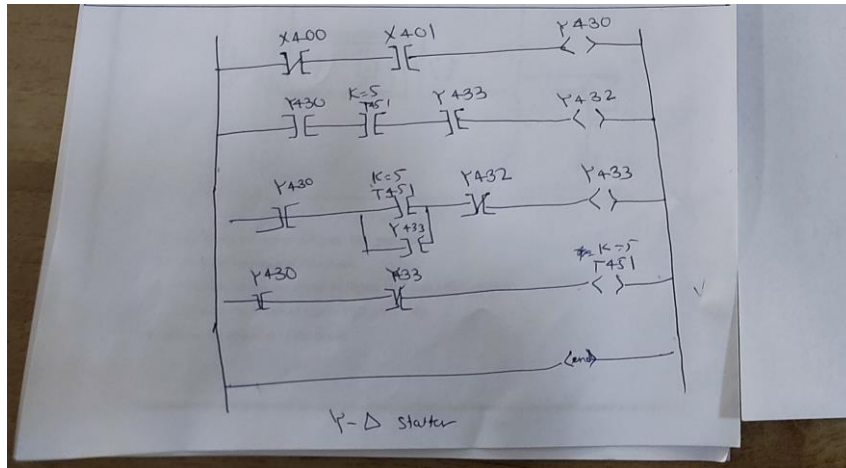 X400 X401 Y430
Y430 K=5 T451 Y433 Y432
Y430 K=5 T451 Y432 Y433
Y433
Y430 Y433 K=5 T451
end
Y-Δ starter